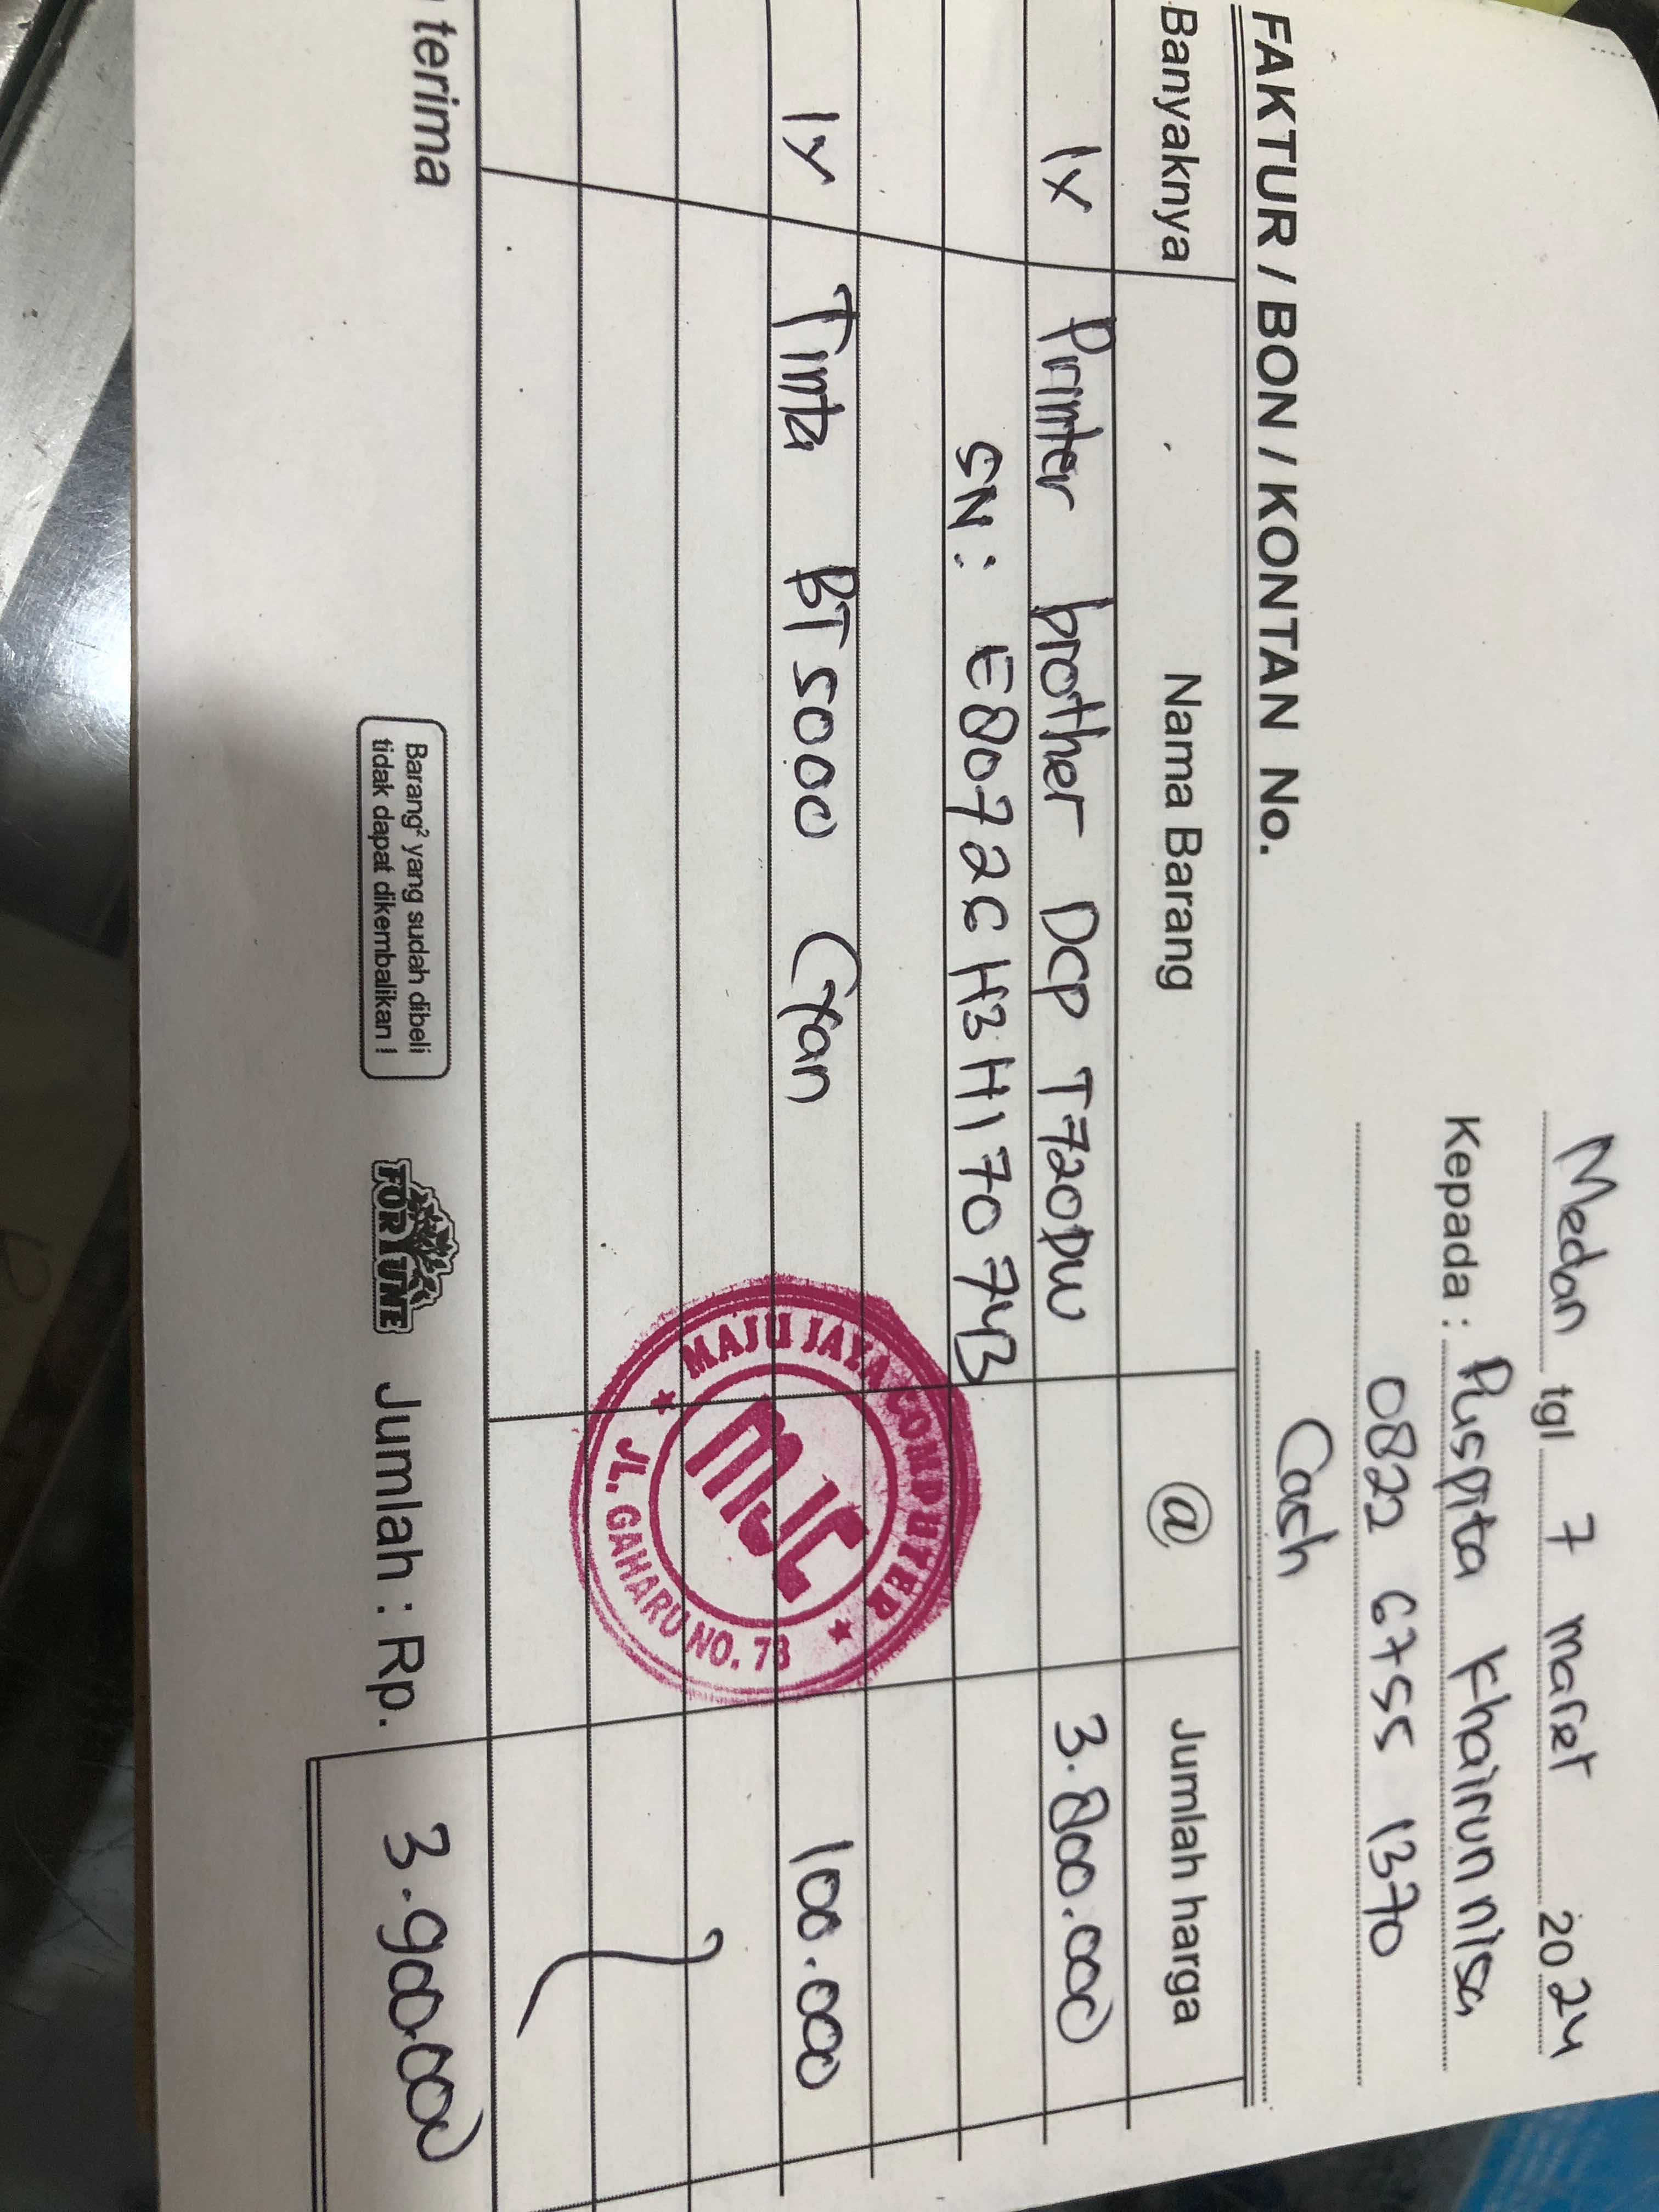 Medan tgl 7 maret 2024
Kepada : Puspita Khairunnisa
0822 6755 1370
FAKTUR / BON / KONTAN No.
Cash
Banyaknya Nama Barang @ Jumlah harga
1x Printer brother DCP T720DW 3.800.000
SN : E80726H3H170743
1x Tinta BT5000 Cyan 100.000
MAJU JAYA COMPUTER
MJC
JL. GAHARU NO. 73
terima
Barang² yang sudah dibeli
tidak dapat dikembalikan !
FORTUNE
Jumlah : Rp. 3.900.000